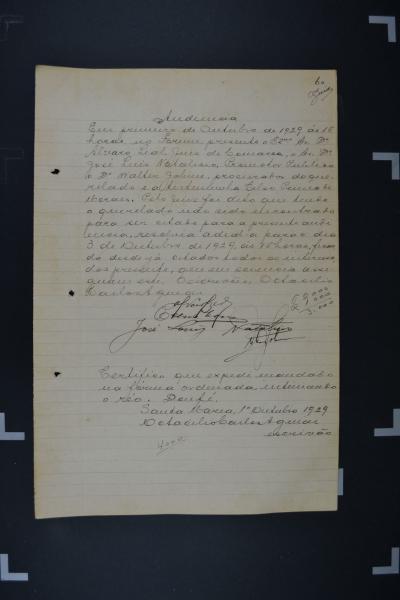 6
Audiencia
Em primeiro de Outubro de 1929 ás 15
horas, no Forum presente o Exmo Sr. Dr.
Alvaro Leal, Juiz de Comarca, o Sr. Dr.
José Luiz Natalicio, Promotor Publico
o Dr Walter Jobim, procurador do que-
relado e a testemunha
Moraes. Pelo Juiz foi dito que tendo
o querelado não sido encontrado
para ser citado para a presente audi-
encia, resolvia adial-a para o dia
3 de Outubro de 1929, ás horas, fican-
do desde já citados todos os interessa-
dos presente, que em sciencia assi-
gnam este. O escrivão, Octacilio
Carlos
José Luiz Natalicio
Certifico que expedi mandado
na fórma ordenada, intimando
o réo. Dou fé.
Santa Maria, 1º Outubro 1929
Octacilio Carlos
escrivão